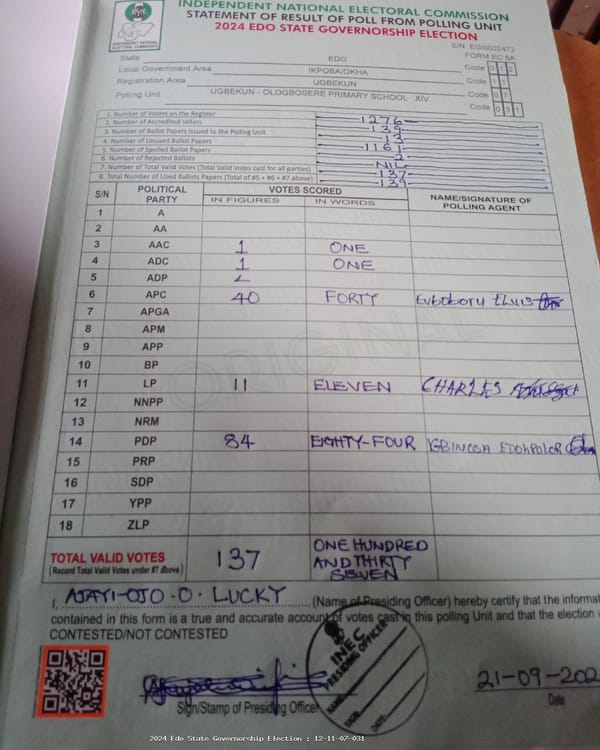 INDEPENDENT NATIONAL ELECTORAL COMMISSION
STATEMENT OF RESULT OF POLL FROM POLLING UNIT
2024 EDO STATE GOVERNORSHIP ELECTION
INEC
INDEPENDENT NATIONAL
ELECTORAL COMMISSION
FORM EC 8A
State EDO Code 12
Local Government Area IKPOBA/OKHA Code 11
Registration Area UGBEKUN Code 07
Polling Unit UGBEKUN - OLOGBOSERE PRIMARY SCHOOL XIV Code 031
1. Number of Voters on the Register 1276
2. Number of Accredited Voters 139
3. Number of Ballot Papers Issued to the Polling Unit
4. Number of Unused Ballot Papers 1161
5. Number of Spoiled Ballot Papers 2
6. Number of Rejected Ballots NIL
7. Number of Total Valid Votes (Total Valid Votes cast for all parties) 137
8. Total Number of Used Ballots Papers (Total of #5 + #6 + #7 above) 139
S/N POLITICAL PARTY VOTES SCORED NAME/SIGNATURE OF POLLING AGENT
IN FIGURES IN WORDS
1 A
2 AA
3 AAC 1 ONE
4 ADC 1 ONE
5 ADP
6 APC 40 FORTY
7 APGA
8 APM
9 APP
10 BP
11 LP 11 ELEVEN CHARLES
12 NNPP
13 NRM
14 PDP 84 EIGHTY-FOUR
15 PRP
16 SDP
17 YPP
18 ZLP
ORIGINAL
TOTAL VALID VOTES 137 ONE HUNDRED
(Record Total Valid Votes under #7 above) AND THIRTY
SEVEN
I, AJAYI-OJO.O. LUCKY (Name of Presiding Officer) hereby certify that the informat
contained in this form is a true and accurate account of votes cast in this polling Unit and that the election w
CONTESTED/NOT CONTESTED
INEC
PRESIDING OFFICER
NAME:
SIGN:
DATE:
21-09-202
Sign/Stamp of Presiding Officer Date
2024 Edo State Governorship Election : 12-11-07-031